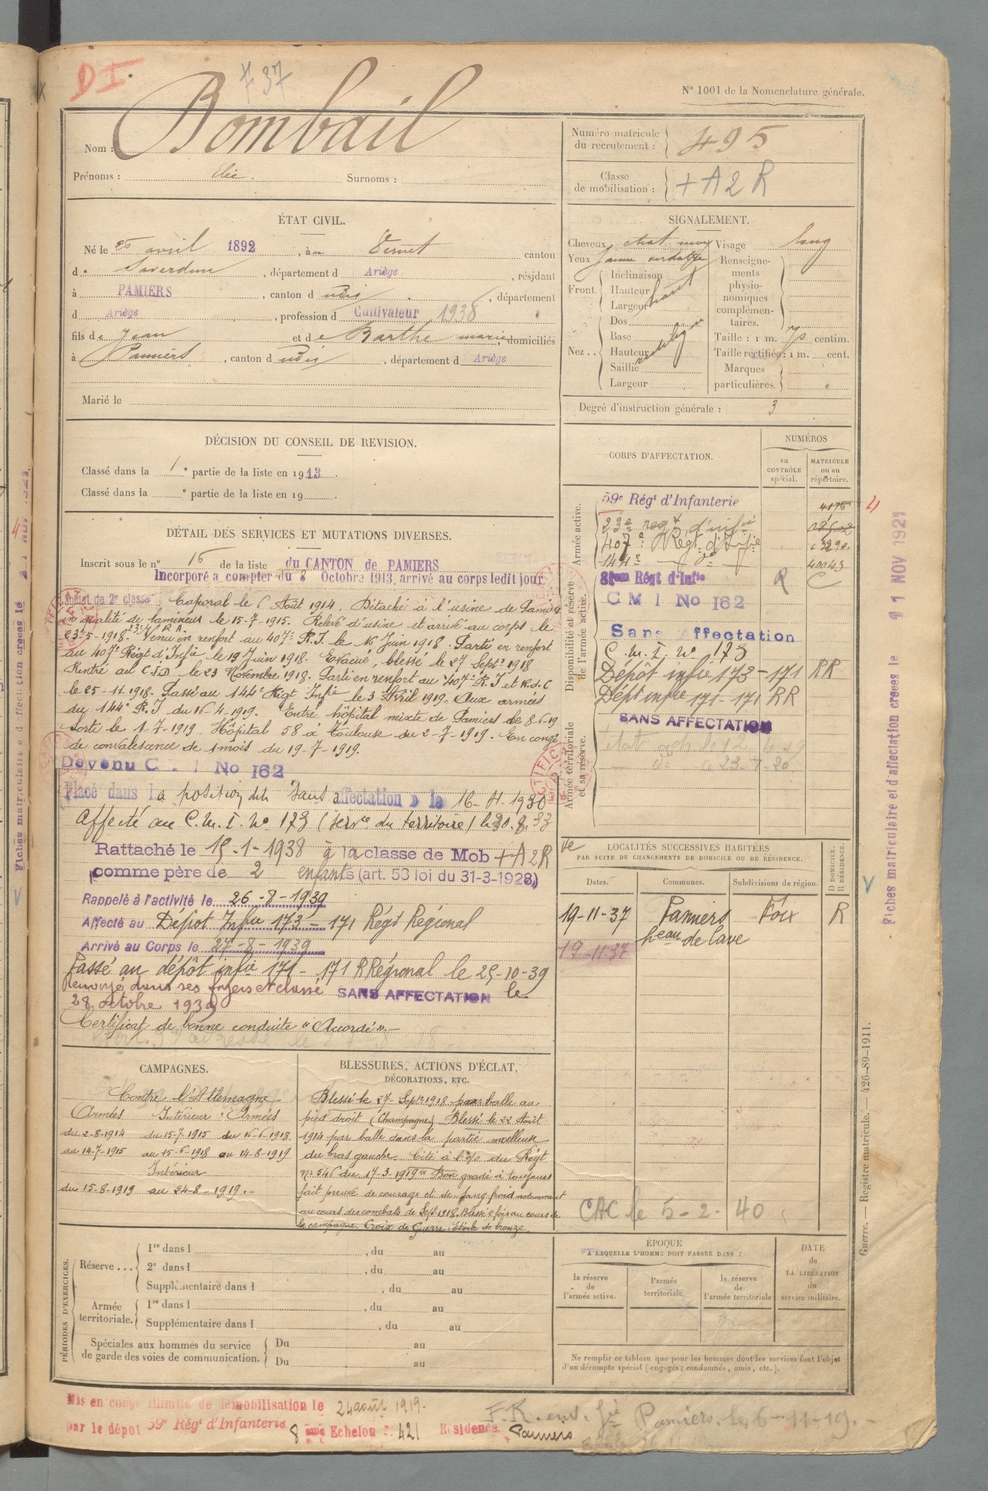 D I
737
N° 1001 de la Nomenclature générale.
Nom : Bombail
Prénoms : Élie. Surnoms :
Numéro matricule du recrutement : 495
Classe de mobilisation : +A2R
ÉTAT CIVIL.
Né le 25 avril 1892, à Vernet canton
d Saverdun, département d Ariège, résidant
à PAMIERS, canton d udis, département
d Ariège, profession d Cultivateur 1938
fils de Jean et de Barthe marie, domiciliés
à Pamiers, canton d udis, département d Ariège
Marié le
SIGNALEMENT.
Cheveux chat. moy Visage long
Yeux jaune verdâtre
Front. Inclinaison
Hauteur haut
Largeur
Nez. Dos
Base
Hauteur rectilig
Saillie
Largeur
Renseignements physionomiques complémentaires.
Taille : 1 m. centim.
Taille rectifiée : 1 m. cent.
Marques particulières.
Degré d'instruction générale : 3
DÉCISION DU CONSEIL DE REVISION.
Classé dans la 1e partie de la liste en 1913.
Classé dans la e partie de la liste en 19
DÉTAIL DES SERVICES ET MUTATIONS DIVERSES.
Inscrit sous le n° 16 de la liste du CANTON de PAMIERS
Incorporé a compter du 8 Octobre 1913, arrivé au corps ledit jour
Soldat de 2e classe Caporal le 6 Août 1914. Détaché à l'usine de Pamiers
en qualité de lamineur le 15-7-1915. Relevé d'usine et arrivé au corps le
23-5-1918. Venu en renfort au 407e R.I le 16 Juin 1918. Parti en renfort
au 407e Régt d'Infie le 19 Juin 1918. Évacué, blessé le 27 Septe 1918
Rentré au C.I.D. le 23 Novembre 1918. Parti en renfort au 407e R.I et R.d.C
le 25-11-1918. Passé au 144e Régt Infie le 3 Avril 1919. Aux armées
du 144e R.I du 16-4-1919. Entré hôpital mixte de Pamiers le 8-6-19
sorti le 1-7-1919. Hôpital 58 à Toulouse du 2-7-1919. En congé
de convalescence de 1 mois du 19-7-1919.
Devenu C M I No 162
Placé dans la position dite "sans affectation" le 16-4-1930
Affecté au C.M.I. N° 173 (servce du territoire) le 20.8.33
Rattaché le 15-1-1938 à la classe de Mob +A2R
comme père de 2 enfants (art. 58 loi du 31-3-1928)
Rappelé à l'activité le 26-8-1939
Affecté au Dépôt Infie 173 - 171 Régt Régional
Arrivé au Corps le 27-8-1939
Passé au dépôt infie 171 - 171 R Régional le 25-10-39
Renvoyé dans ses foyers et classé SANS AFFECTATION le
28 octobre 1939
Certificat de bonne conduite "Accordé".
CORPS D'AFFECTATION.
NUMÉROS
au CONTRÔLE spécial.
MATRICULE ou au répertoire.
Armée active.
59e Régt d'Infanterie 4175
23e regt d'infie
407e Regt d'Infie
144e do
Disponibilité et réserve de l'armée active.
Régt d'Infie R C
C M I No 162
Sans affectation
C.M.I. N° 173
Dépôt infie 173-171 RR
Dépôt infie 171-171 RR
SANS AFFECTATION
Armée territoriale et sa réserve.
LOCALITÉS SUCCESSIVES HABITÉES
PAR SUITE DE CHANGEMENTS DE DOMICILE OU DE RÉSIDENCE.
Dates. Communes. Subdivisions de région. D DOMICILE. R RÉSIDENCE.
19-11-37 Pamiers Foix R
19-11-37
CAC le 5-2-40
CAMPAGNES.
Contre l'Allemagne
Armées Intérieur Armées
du 2-8-1914 du 15-7-1915 du 16-6-1918
au 14-7-1915 au 15-6-1918 au 14-8-1919
Intérieur
du 15-8-1919 au 24-8-1919.
BLESSURES, ACTIONS D'ÉCLAT,
DÉCORATIONS, ETC.
Blessé le 27 Septe 1918 par balle au
pied droit (Champagne) Blessé le 22 Août
1914 par balle dans la partie moelleuse
du bras gauche. Cité à l'O/ du Régt
N° 546 du 17-3-1919 "Bon gradé à toujours
fait preuve de courage et de sang froid notamment
au cours des combats de Septe 1918. Blessé 2 fois au cours de
la campagne. Croix de Guerre : étoile de bronze.
PÉRIODES D'EXERCICES.
Réserve ... 1re dans l , du au
2e dans l , du au
Supplémentaire dans l , du au
Armée territoriale. 1re dans l , du au
Supplémentaire dans l , du au
Spéciales aux hommes du service de garde des voies de communication. Du au
Du au
ÉPOQUE
À LAQUELLE L'HOMME DOIT PASSER DANS :
la réserve de l'armée active.
l'armée territoriale.
la réserve de l'armée territoriale
DATE de LA LIBÉRATION du service militaire.
Ne remplir ce tableau que pour les hommes dont les services font l'objet
d'un décompte spécial (engagés, condamnés, omis, etc.).
Mis en congé illimité de démobilisation le 24 août 1919.
par le dépôt 59e Régt d'Infanterie 8 ème Echelon N° 421 Résidence Pamiers
Pamiers, le 6-11-19.
Guerre. — Registre matricule. — 426-89-1911.
Fiches matriculaire et d'affectation créées le 11 NOV 1921